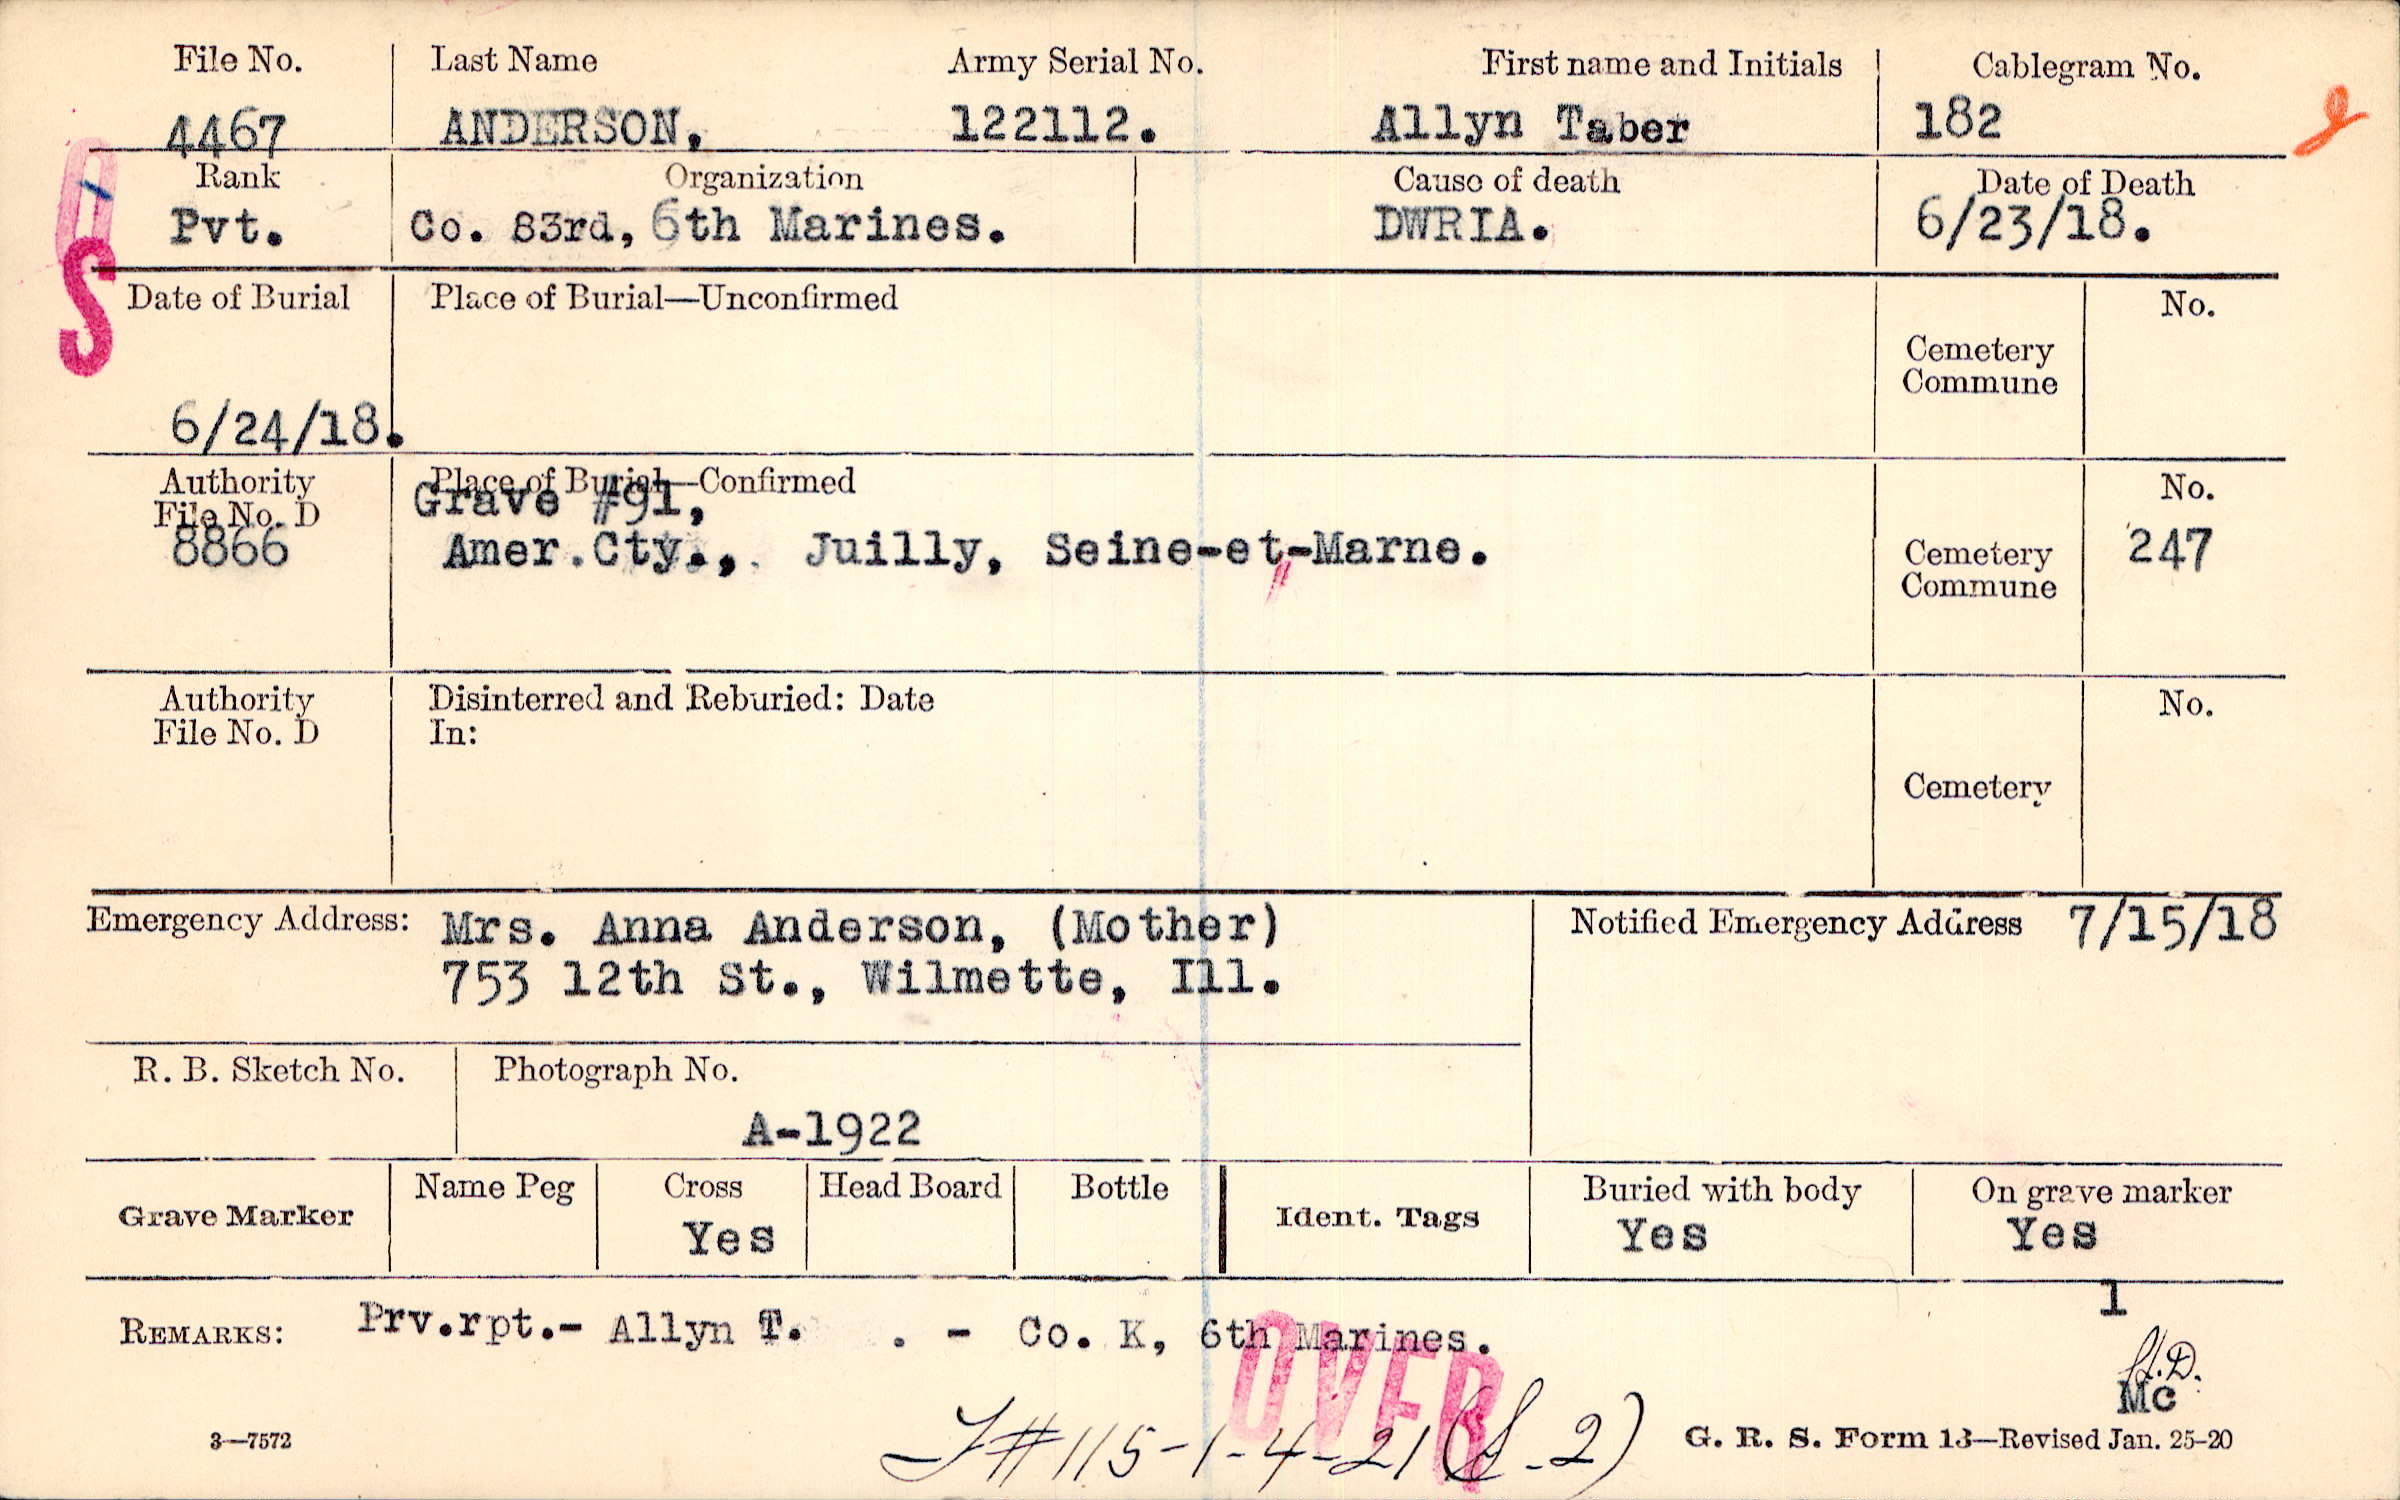 File No. Last Name Army Serial No. First name and Initials Cablegram No.
4467 ANDERSON, 122112. Allyn Taber 182
Rank Organization Cause of death Date of Death
Pvt. Co. 83rd, 6th Marines. DWRIA. 6/23/18.
S
Date of Burial Place of Burial—Unconfirmed No.
Cemetery
Commune
6/24/18.
Authority Place of Burial—Confirmed No.
File No. D Grave #91,
8866 Amer.Cty., Juilly, Seine-et-Marne. Cemetery 247
Commune
Authority Disinterred and Reburied: Date No.
File No. D In:
Cemetery
Emergency Address: Mrs. Anna Anderson, (Mother) Notified Emergency Address 7/15/18
753 12th St., Wilmette, Ill.
R. B. Sketch No. Photograph No.
A-1922
Grave Marker Name Peg Cross Head Board Bottle Ident. Tags Buried with body On grave marker
Yes Yes Yes
1
REMARKS: Prv.rpt.- Allyn T. . - Co. K, 6th Marines.
OVER
Mc
3—7572 #115-1-4-21 G. R. S. Form 13—Revised Jan. 25-20